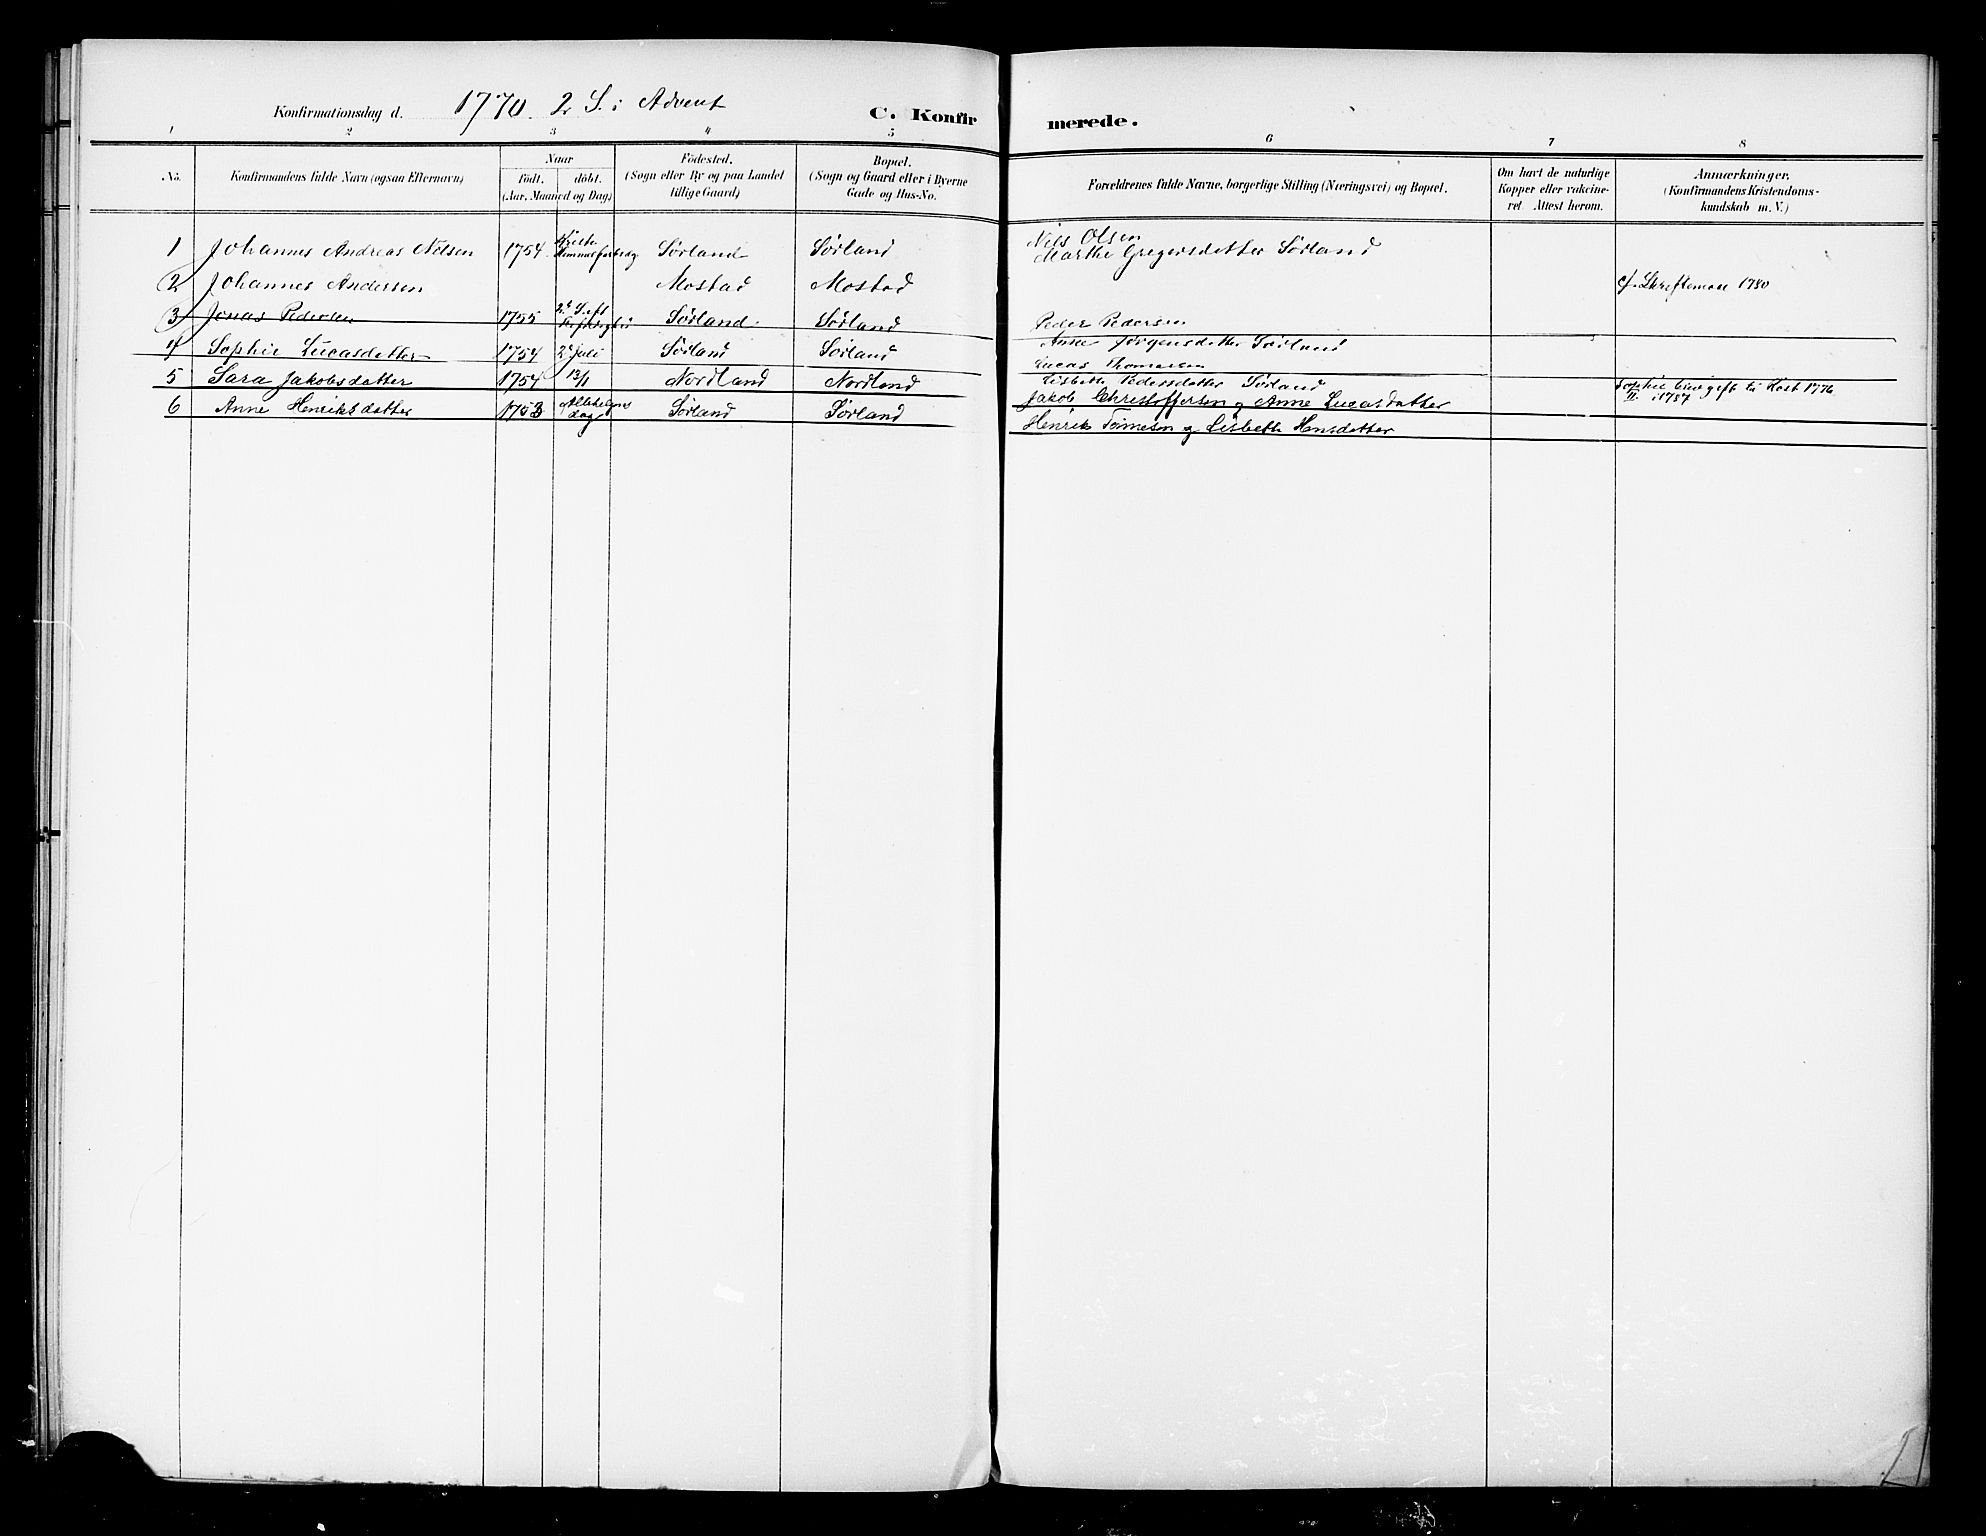 Konfirmationsdag d. 1770. 2 S. i Advent
C. Konfir merede.
1 2 3 4 5 6 7 8
No.
Konfirmandens fulde Navn (ogsaa Efternavn)
Naar
Födt. döbt.
(Aar, Maaned og Dag)
Födested.
(Sogn eller By og paa Landet
tillige Gaard)
Bopæl.
(Sogn og Gaard eller i Byerne
Gade og Hus-No.
Forældrenes fulde Navne, borgerlige Stilling (Næringsvei) og Bopæl.
Om havt de naturlige
Kopper eller vakcine-
ret. Attest herom.
Anmærkninger.
(Konfirmandens Kristendoms-
kundskab m. V.)
1 Johannes Andreas Nilsen 1754 Kristi Himmelfartsdg Sørland Sørland
Nils Olsen
Marthe Gregersdetter Sørland
2 Johannes Andersen Mostad Mostad
cf. Skriftemaal 1780
3 Jonas Pedersen 1755 2d S. eft Sørland Sørland
Peder Pedersen
Anne Jørgensdetter Sørland
4 Sophie Lucasdetter 1754 2d Juli Sørland Sørland
Lucas Thomassen
Lisbeth Pedersdetter Sørland
5 Sara Jakobsdatter 1754 13/1 Nordland Nordland
Jakob Christoffersen og Anne Lucasdatter
Sophie blev gift til Høst 1776
II. i 1787
6 Anne Henriksdatter 1753 Allehelgnes dag Sørland Sørland
Henrik Teimesen og Lisbeth Hansdetter